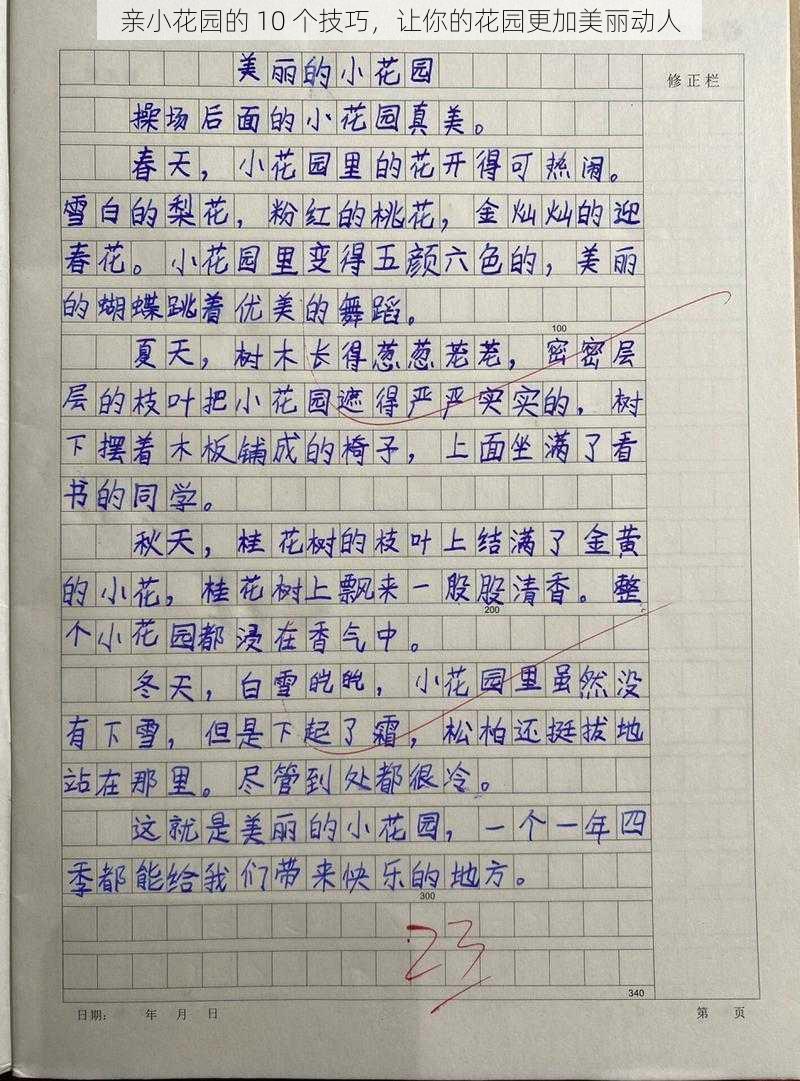 亲小花园的 10 个技巧，让你的花园更加美丽动人
美丽的小花园
修正栏
操场后面的小花园真美。
春天，小花园里的花开得可热闹。
雪白的梨花，粉红的桃花，金灿灿的迎
春花。小花园里变得五颜六色的，美丽
的蝴蝶跳着优美的舞蹈。
100
夏天，树木长得葱葱茏茏，密密层
层的枝叶把小花园遮得严严实实的，树
下摆着木板铺成的椅子，上面坐满了看
书的同学。
秋天，桂花树的枝叶上结满了金黄
的小花，桂花树上飘来一股股清香。整
200
个小花园都浸在香气中。
冬天，白雪皑皑，小花园里虽然没
有下雪，但是下起了霜，松柏还挺拔地
站在那里。尽管到处都很冷。
这就是美丽的小花园，一个一年四
季都能给我们带来快乐的地方。
300
23
340
日期： 年 月 日
第 页